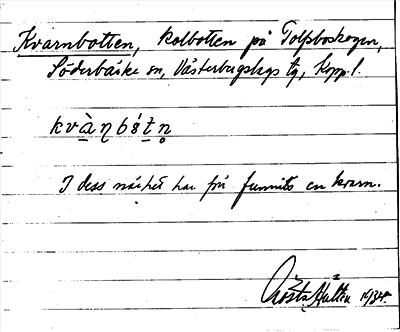 Kvarnbotten, kolbotten på Tolpboskogen,
Söderbärke sn, Västerbergslags tg, Kopp. l.
kvà̱ɳbót̠n̥
I dess närhet har förr funnits en kvarn.
Gösta Hultin 1934.